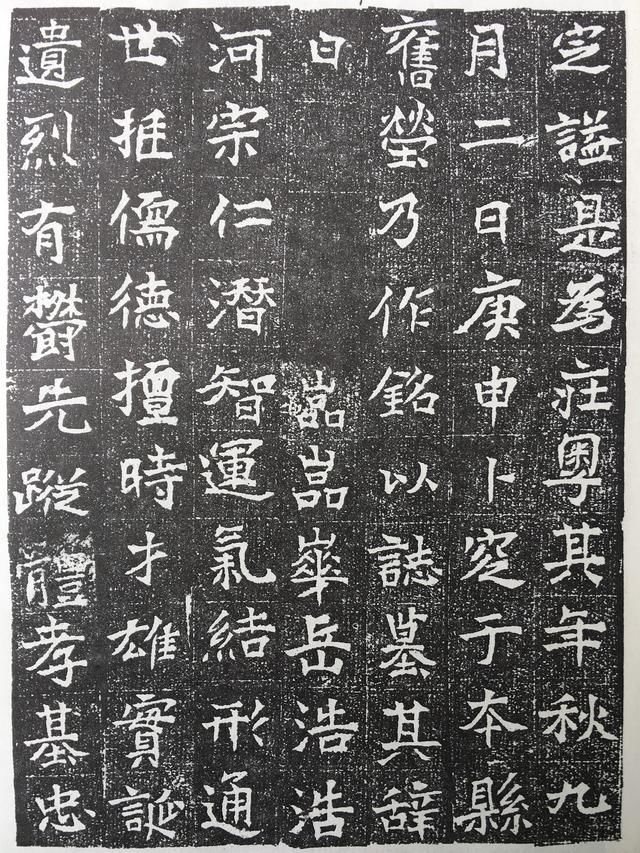 定謚是為疰粵其年秋九
月二日庚申卜窆于本縣
舊塋乃作銘以誌墓其辭
曰 嵓嵓崋岳浩浩
河宗仁潛智運氣結形通
世推儒德擅時才雄實誕
遺烈有欝先蹤體孝基忠